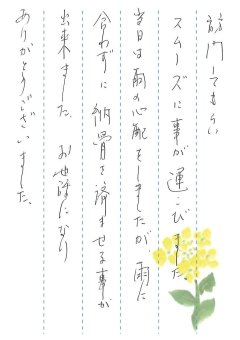 訪問してもらい
スムーズに事が運こびました。
当日は雨の心配をしましたが、雨に
合わずに納骨を済ませる事が
出来ました。お世話になり
ありがとうございました。